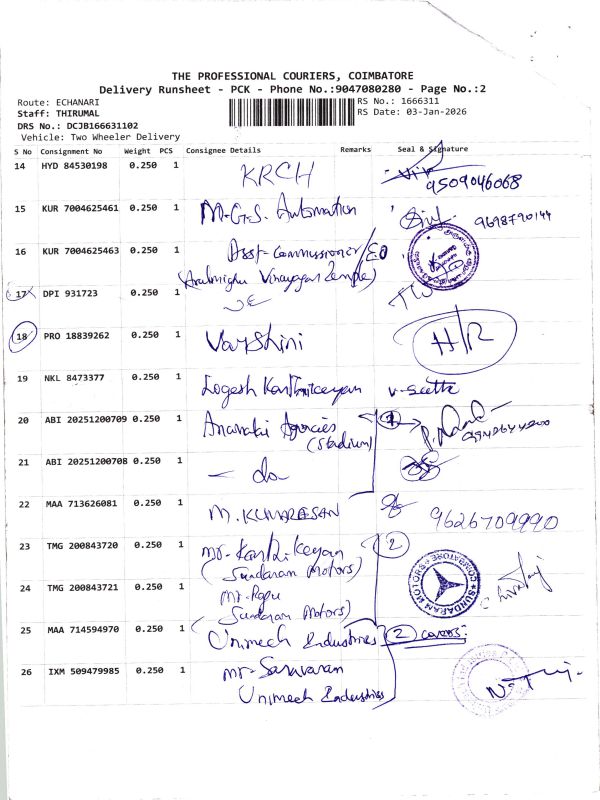 THE PROFESSIONAL COURIERS, COIMBATORE
Delivery Runsheet - PCK - Phone No.:9047080280 - Page No.:2
Route: ECHANARI
Staff: THIRUMAL
DRS No.: DCJB166631102
Vehicle: Two Wheeler Delivery
RS No.: 1666311
RS Date: 03-Jan-2026
S No Consignment No Weight PCS Consignee Details Remarks Seal & Signature
14 HYD 84530198 0.250 1 KRCH
9509046068
15 KUR 7004625461 0.250 1 M.G.S. Automation
9698790144
16 KUR 7004625463 0.250 1 Asst Commissioner/EO
(Arulmighu Vinayagar Temple)
17 DPI 931723 0.250 1
18 PRO 18839262 0.250 1 Varshini H/R
19 NKL 8473377 0.250 1 Logesh Karthikeyan V-Seetha
20 ABI 20251200709 0.250 1 Agencies
(Stadium)
21 ABI 20251200708 0.250 1 - do -
22 MAA 713626081 0.250 1 M. KUMARESAN
9626709990
23 TMG 200843720 0.250 1 Mr. Karthikeyan 2
(Sundaram Motors)
SUNDARAM MOTORS
COIMBATORE
24 TMG 200843721 0.250 1 Mr.
Sundaram Motors)
25 MAA 714594970 0.250 1 (Unimech Industries) 2 covers
26 IXM 509479985 0.250 1 Mr. Saravanan
Unimech Industries